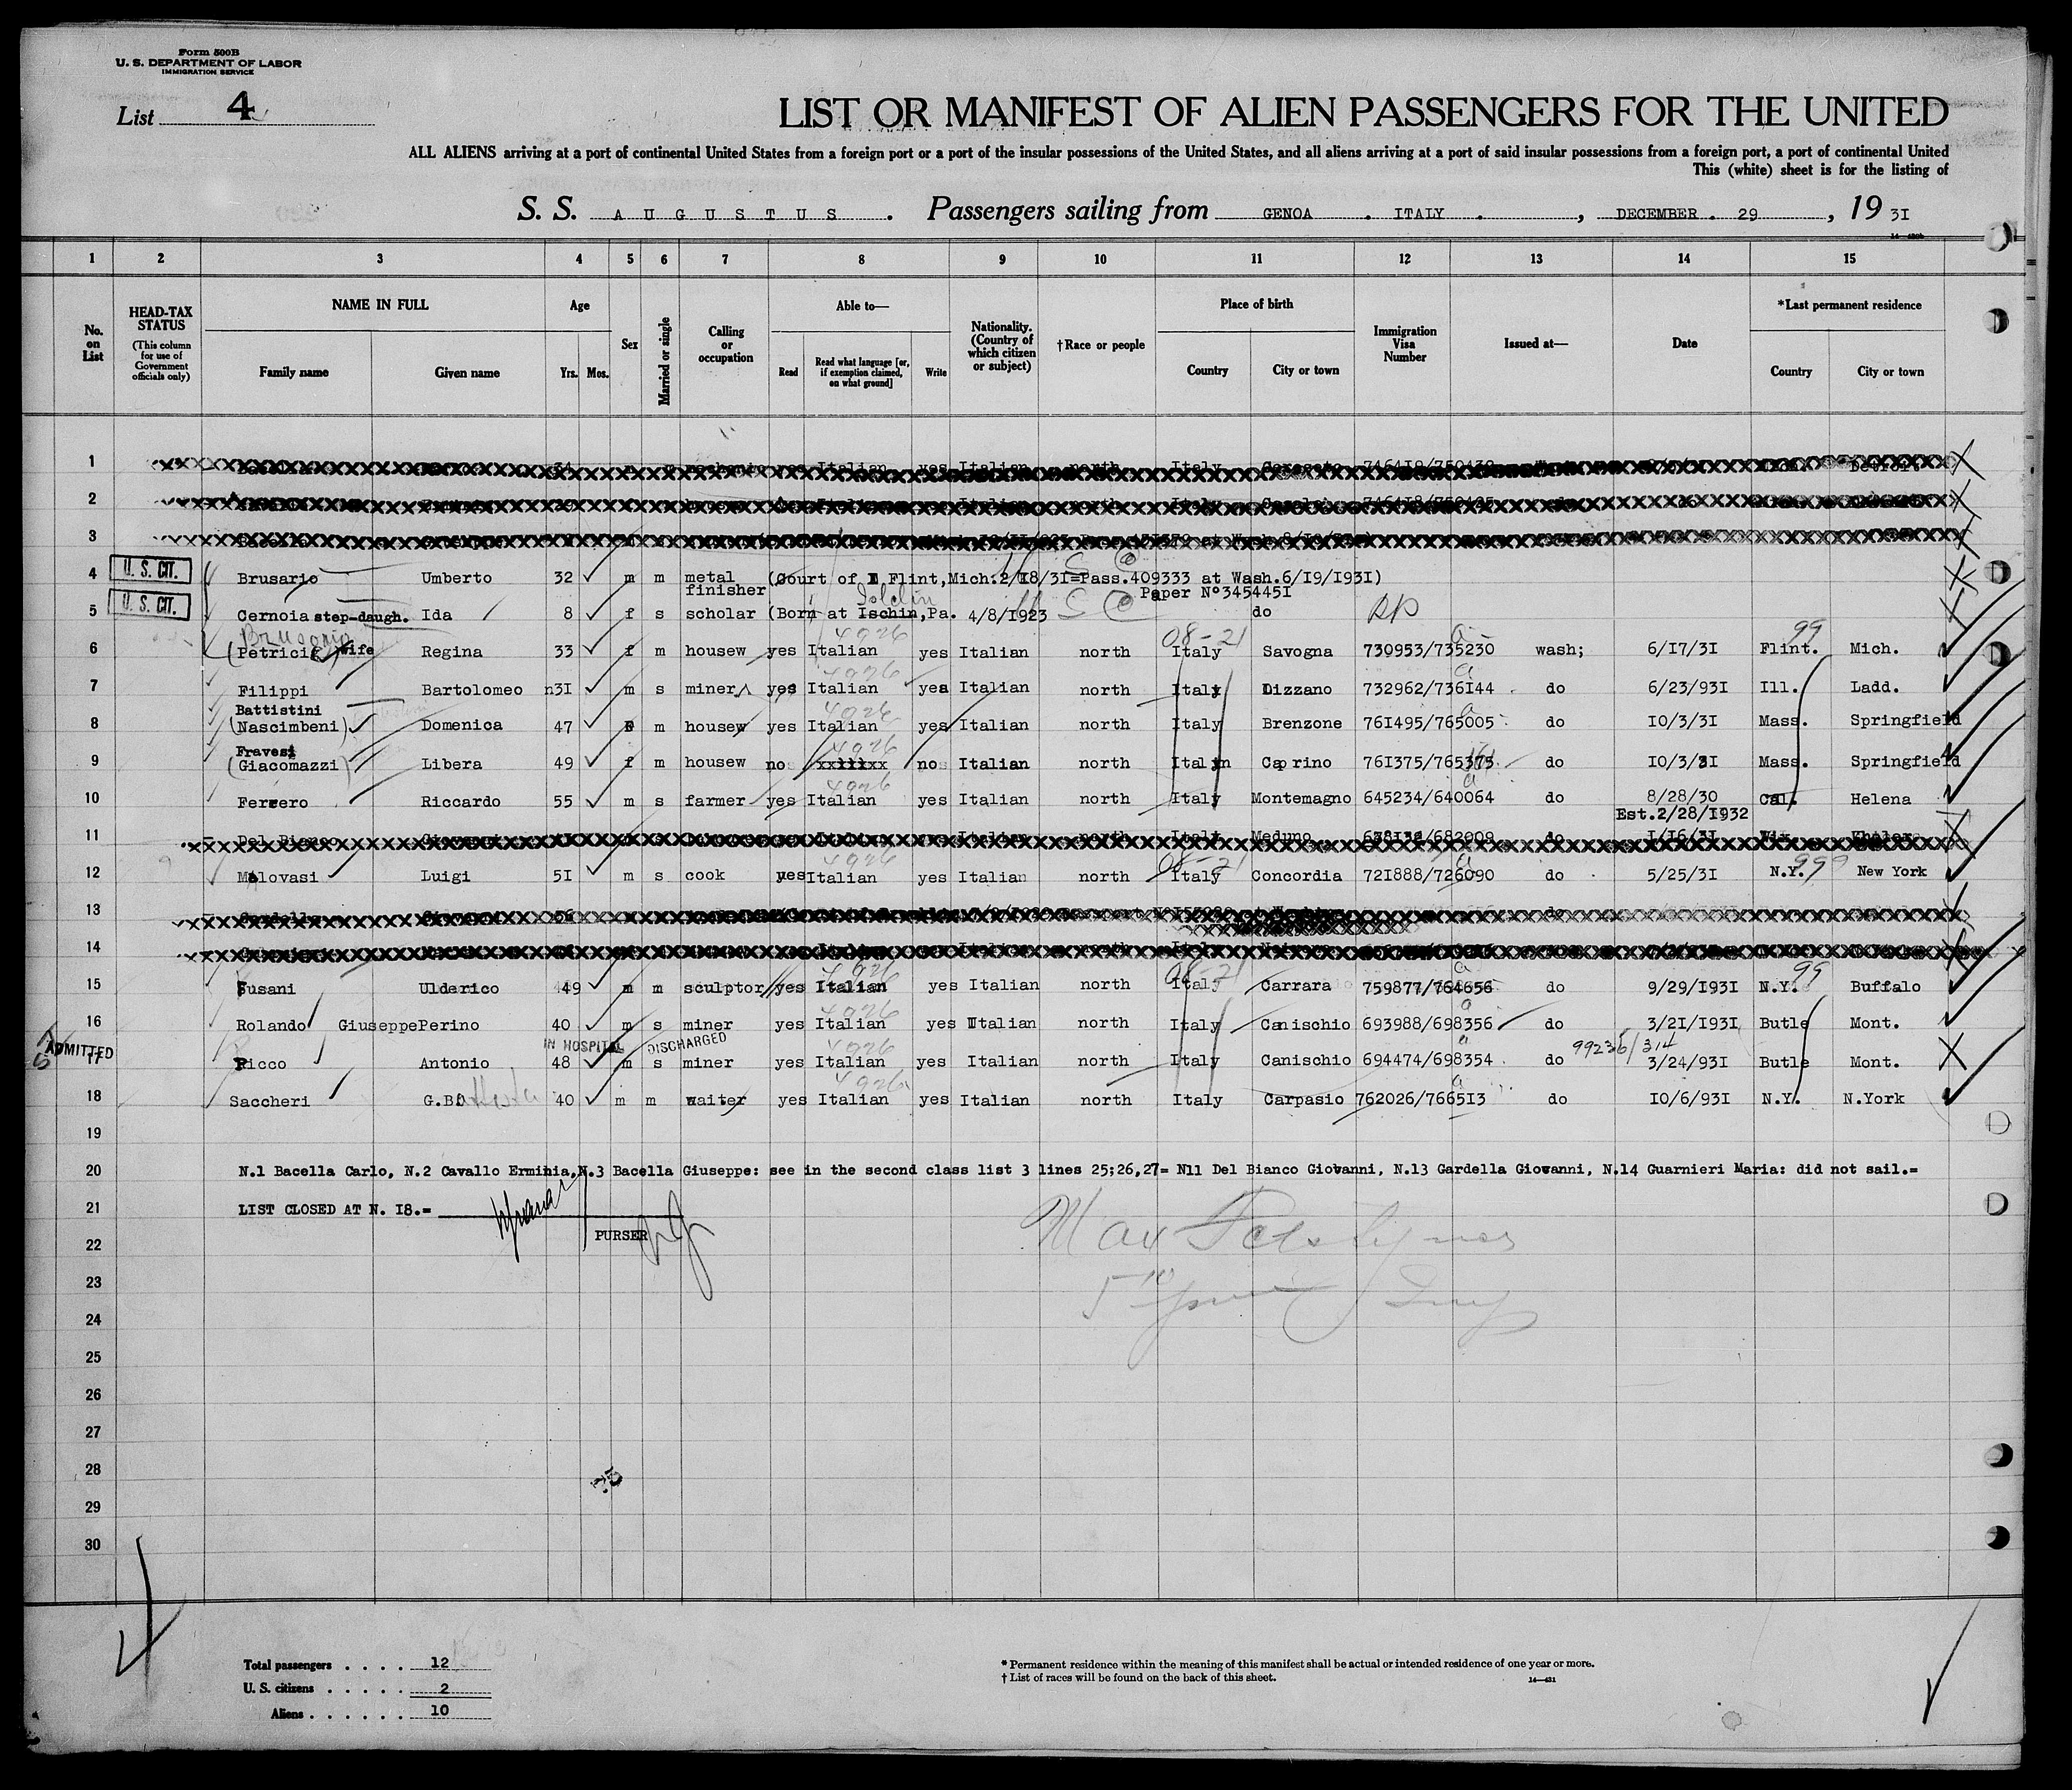 Form 500B
U. S. DEPARTMENT OF LABOR
IMMIGRATION SERVICE
List 4
LIST OR MANIFEST OF ALIEN PASSENGERS FOR THE UNITED
ALL ALIENS arriving at a port of continental United States from a foreign port or a port of the insular possessions of the United States, and all aliens arriving at a port of said insular possessions from a foreign port, a port of continental United
This (white) sheet is for the listing of
S. S. AUGUSTUS . Passengers sailing from GENOA . ITALY . , DECEMBER . 29 , 19 31
1 2 3 4 5 6 7 8 9 10 11 12 13 14 15
No. on List
HEAD-TAX STATUS (This column for use of Government officials only)
NAME IN FULL Family name Given name
Age Yrs. Mos.
Sex
Married or single
Calling or occupation
Able to— Read Read what language [or, if exemption claimed, on what ground] Write
Nationality. (Country of which citizen or subject)
†Race or people
Place of birth Country City or town
Immigration Visa Number
Issued at—
Date
*Last permanent residence Country City or town
1 yes Italian yes Italian north Italy
2 Italian north Italy
3
4 U. S. CIT. Brusario Umberto 32 m m metal finisher (Court of Flint,Mich.2/18/31=Pass.409333 at Wash.6/19/1931)
Paper N°3454451
5 U. S. CIT. Cernoia step-daugh. Ida 8 f s scholar (Born at Ischin,Pa. 4/8/1923 do
Brusario
6 (Petricig) wife Regina 33 f m housew yes Italian 4926 yes Italian north 08-21 Italy Savogna 730953/735230 wash; 6/17/31 99 Flint. Mich.
7 Filippi Bartolomeo 31 m s miner yes Italian 4926 yes Italian north Italy Dizzano 732962/736144 do 6/23/931 Ill. Ladd.
Battistini
8 (Nascimbeni) Domenica 47 m housew yes Italian 4926 yes Italian north Italy Brenzone 761495/765005 do 10/3/31 Mass. Springfield
Fravesi
9 (Giacomazzi) Libera 49 f m housew no 4926 no Italian north Italy Caprino 761375/765375 do 10/3/31 Mass. Springfield
10 Ferrero Riccardo 55 m s farmer yes Italian 4926 yes Italian north Italy Montemagno 645234/640064 do 8/28/30 Cal. Helena
Est.2/28/1932
11 Del Bianco Italian north Italy Meduno 678132/682009 do 1/16/31
12 Malovasi Luigi 51 m s cook yes Italian 4926 yes Italian north 08-21 Italy Concordia 721888/726090 do 5/25/31 N.Y. 999 New York
13
14 Italian yes Italian north Italy
15 Fusani Ulderico 49 m m sculptor yes Italian 4926 yes Italian north 08-21 Italy Carrara 759877/764656 do 9/29/1931 99 N.Y. Buffalo
16 Rolando Giuseppe Perino 40 m s miner yes Italian 4926 yes Italian north Italy Canischio 693988/698356 do 3/21/1931 Butle Mont.
IN HOSPITAL DISCHARGED 99236/314
ADMITTED 17 Ricco Antonio 48 m s miner yes Italian 4926 yes Italian north Italy Canischio 694474/698354 do 3/24/931 Butle Mont.
18 Saccheri G.B. 40 m m waiter yes Italian 4926 yes Italian north Italy Carpasio 762026/766513 do 10/6/931 N.Y. N.York
19
20 N.1 Bacella Carlo, N.2 Cavallo Erminia,N.3 Bacella Giuseppe: see in the second class list 3 lines 25;26,27= N11 Del Bianco Giovanni, N.13 Gardella Giovanni, N.14 Guarnieri Maria: did not sail.=
21 LIST CLOSED AT N. 18.=
PURSER
22
23
24
25
26
27
28
29
30
Total passengers . . . . 12
U. S. citizens . . . . . 2
Aliens . . . . . . 10
* Permanent residence within the meaning of this manifest shall be actual or intended residence of one year or more.
† List of races will be found on the back of this sheet.